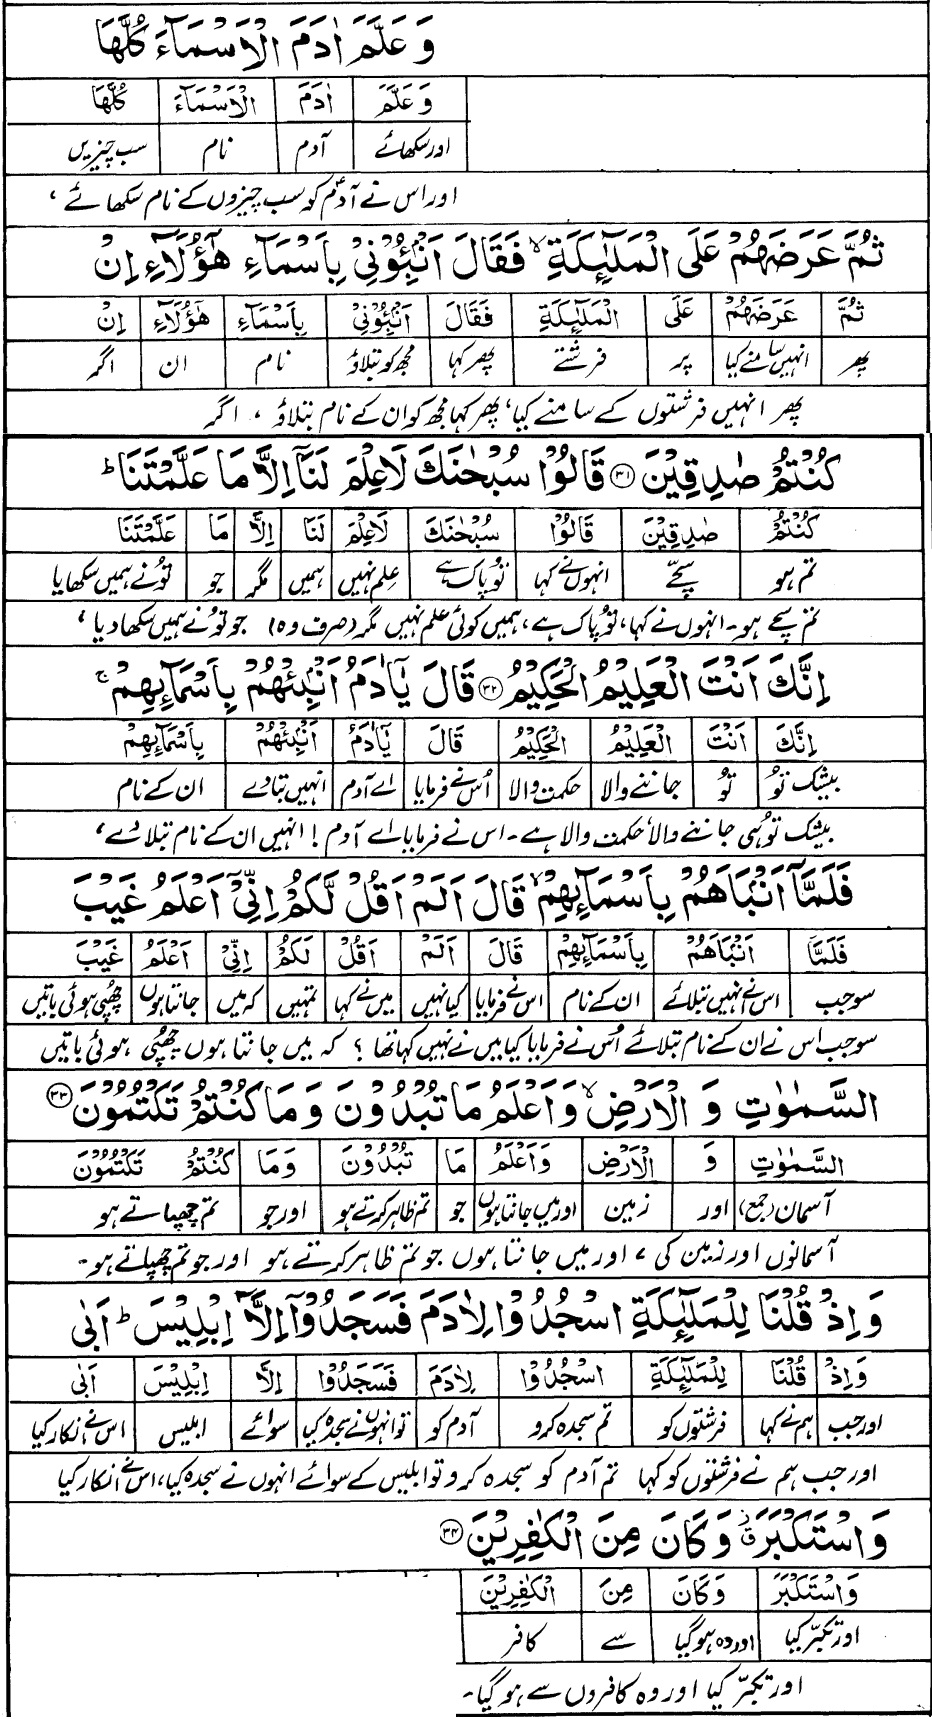 وَعَلَّمَ اٰدَمَ الْاَسْمَآءَ كُلَّهَا
وَعَلَّمَ اٰدَمَ الْاَسْمَآءَ كُلَّهَا
اور سکھائے آدم نام سب چیزیں
اور اس نے آدمؑ کو سب چیزوں کے نام سکھائے،
ثُمَّ عَرَضَهُمْ عَلَى الْمَلٰٓئِكَةِ ۙ فَقَالَ اَنْۢبِـُٔوْنِيْ بِاَسْمَآءِ هٰٓؤُلَآءِ اِنْ
ثُمَّ عَرَضَهُمْ عَلَى الْمَلٰٓئِكَةِ فَقَالَ اَنْۢبِـُٔوْنِيْ بِاَسْمَآءِ هٰٓؤُلَآءِ اِنْ
پھر انہیں سامنے کیا پر فرشتے پھر کہا مجھ کو بتلاؤ نام ان اگر
پھر انہیں فرشتوں کے سامنے کیا، پھر کہا مجھ کو ان کے نام بتلاؤ، اگر
كُنْتُمْ صٰدِقِيْنَ ۝۳۱ قَالُوْا سُبْحٰنَكَ لَا عِلْمَ لَنَآ اِلَّا مَا عَلَّمْتَنَا ؕ
كُنْتُمْ صٰدِقِيْنَ قَالُوْا سُبْحٰنَكَ لَا عِلْمَ لَنَا اِلَّا مَا عَلَّمْتَنَا
تم ہو سچے انہوں نے کہا تو پاک ہے علم نہیں ہمیں مگر جو تو نے ہمیں سکھایا
تم سچے ہو۔ انہوں نے کہا، تو پاک ہے، ہمیں کوئی علم نہیں مگر (صرف وہ) جو تو نے ہمیں سکھا دیا،
اِنَّكَ اَنْتَ الْعَلِيْمُ الْحَكِيْمُ ۝۳۲ قَالَ يٰٓاٰدَمُ اَنْۢبِئْهُمْ بِاَسْمَآئِهِمْ ۚ
اِنَّكَ اَنْتَ الْعَلِيْمُ الْحَكِيْمُ قَالَ يٰٓاٰدَمُ اَنْۢبِئْهُمْ بِاَسْمَآئِهِمْ
بیشک تو تو جاننے والا حکمت والا اس نے فرمایا اے آدم انہیں بتا دے ان کے نام
بیشک تو ہی جاننے والا، حکمت والا ہے۔ اس نے فرمایا اے آدم! انہیں ان کے نام بتلا دے،
فَلَمَّآ اَنْۢبَاَهُمْ بِاَسْمَآئِهِمْ ۙ قَالَ اَلَمْ اَقُلْ لَّكُمْ اِنِّيْٓ اَعْلَمُ غَيْبَ
فَلَمَّا اَنْۢبَاَهُمْ بِاَسْمَآئِهِمْ قَالَ اَلَمْ اَقُلْ لَكُمْ اِنِّيْ اَعْلَمُ غَيْبَ
سو جب اس نے انہیں بتلائے ان کے نام اس نے فرمایا کیا نہیں میں نے کہا تمہیں کہ میں جانتا ہوں چھپی ہوئی باتیں
سو جب اس نے ان کے نام بتلائے اُس نے فرمایا کیا میں نے نہیں کہا تھا؟ کہ میں جانتا ہوں چھپی ہوئی باتیں
السَّمٰوٰتِ وَ الْاَرْضِ ۙ وَاَعْلَمُ مَا تُبْدُوْنَ وَمَا كُنْتُمْ تَكْتُمُوْنَ ۝۳۳
السَّمٰوٰتِ وَ الْاَرْضِ وَاَعْلَمُ مَا تُبْدُوْنَ وَمَا كُنْتُمْ تَكْتُمُوْنَ
آسمان (جمع) اور زمین اور میں جانتا ہوں جو تم ظاہر کرتے ہو اور جو تم چھپاتے ہو
آسمانوں اور زمین کی، اور میں جانتا ہوں جو تم ظاہر کرتے ہو اور جو تم چھپاتے ہو۔
وَاِذْ قُلْنَا لِلْمَلٰٓئِكَةِ اسْجُدُوْا لِاٰدَمَ فَسَجَدُوْٓا اِلَّآ اِبْلِيْسَ ؕ اَبٰى
وَاِذْ قُلْنَا لِلْمَلٰٓئِكَةِ اسْجُدُوْا لِاٰدَمَ فَسَجَدُوْا اِلَّا اِبْلِيْسَ اَبٰى
اور جب ہم نے کہا فرشتوں کو تم سجدہ کرو آدم کو تو انہوں نے سجدہ کیا سوائے ابلیس اس نے انکار کیا
اور جب ہم نے فرشتوں کو کہا تم آدم کو سجدہ کرو تو ابلیس کے سوائے انہوں نے سجدہ کیا، اس نے انکار کیا
وَاسْتَكْبَرَ ۗ وَكَانَ مِنَ الْكٰفِرِيْنَ ۝۳۴
وَاسْتَكْبَرَ وَكَانَ مِنَ الْكٰفِرِيْنَ
اور تکبّر کیا اور وہ ہو گیا سے کافر
اور تکبّر کیا اور وہ کافروں سے ہو گیا۔